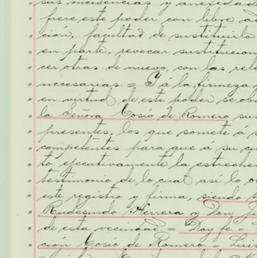 sus incidencias y anexidades
fiere este poder con libre ad
cion, facultad de sustituirlo
en parte, revocar sustitucion
cer otras de nuevo, con las rele
necesarias = Y á la firmeza
en virtud de este poder se ob
la Señora Cosío de Romero su
presentes, los que somete á s
competentes para que á su cu
to ejecutivamente la estreche
testimonio de lo cual así lo o
este registro y firma, siendo
Rudesindo Herrera y Don
de esta vecindad = Doy fe =
cion Cosio de Romero = Luis